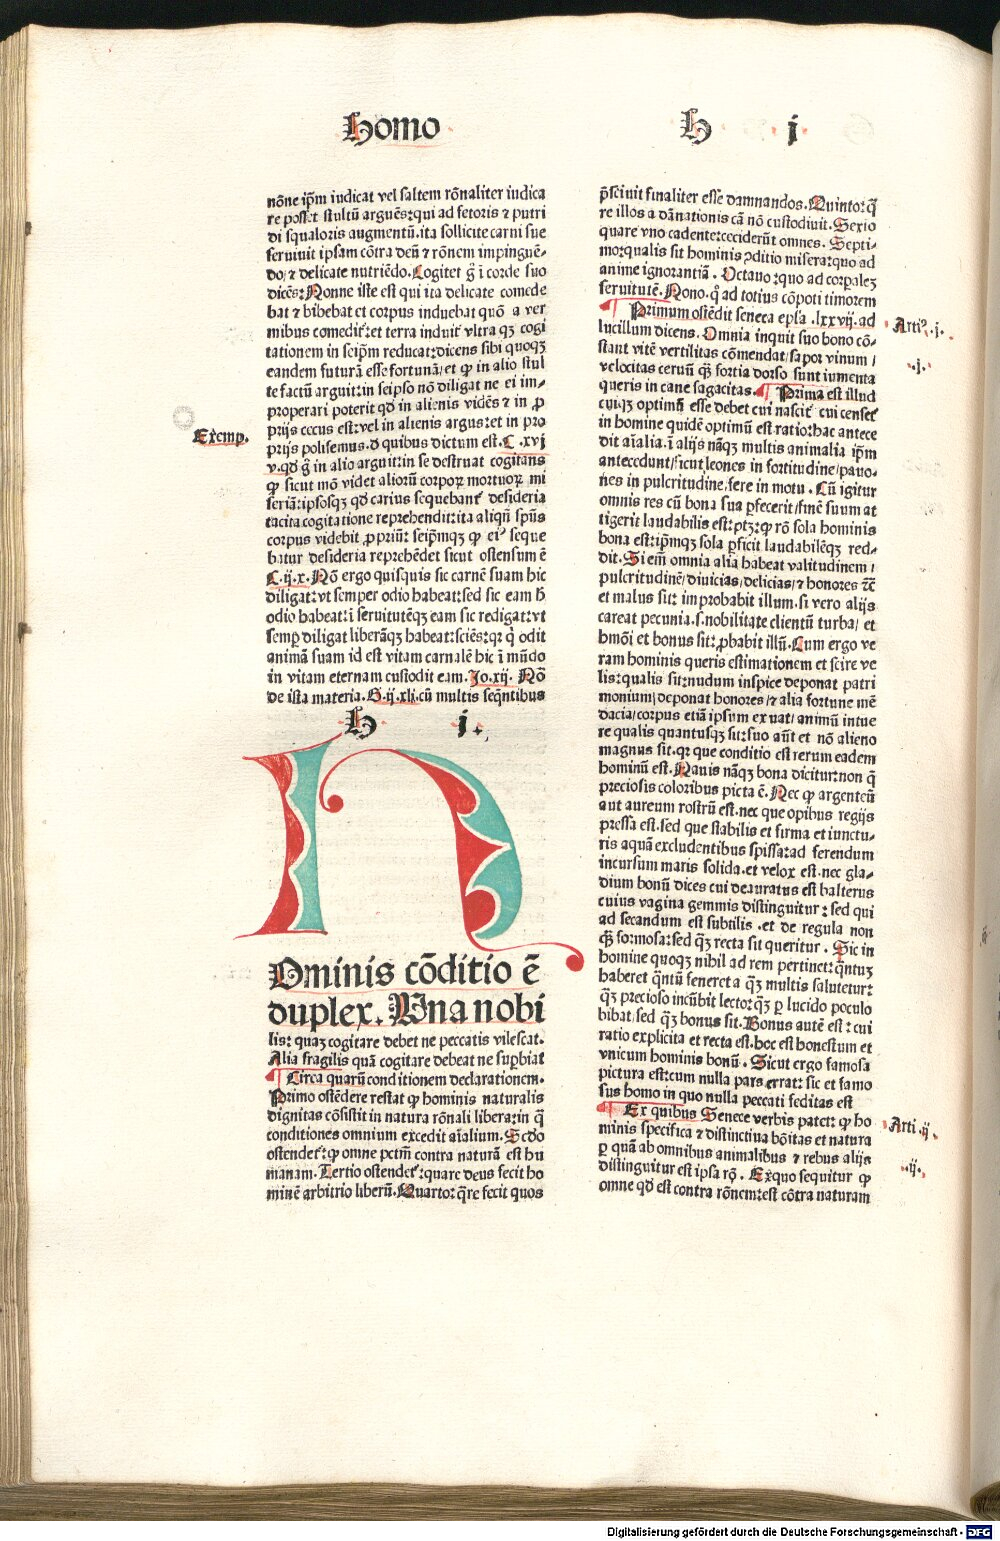 Homo
H i
nōne ip̄m iudicat vel saltem rōnaliter iudica
re posset stultū arguēs: qui ad fetoris ⁊ putri
di squaloris augmentū. ita sollicite carni sue
seruiuit ipsam cōtra deū ⁊ rōnem impingue-
do, ⁊ delicate nutriēdo. Cogitet g̃ i corde suo
dicēs: Nonne iste est qui ita delicate comede
bat ⁊ bibebat et corpus induebat quō a ver
mibus comedit̄: et terra induit̄ vltra qꝫ cogi
tationem in seip̄m reducat: dicens sibi quoqꝫ
eandem futurā esse fortunā, et ꝙ in alio stul
te factū arguit: in seipso nō diligat ne ei im-
properari poterit qd̄ in alienis vidēs ⁊ in ꝓ
prijs cecus est: vel in alienis argus: et in pro
prijs polifemus. d̄ quibus dictum est. C .xvj
Exemp.
v. qd̄ g̃ in alio arguit: in se destruat cogitans
ꝙ sicut mō videt alioru̅ corpoꝝ mortuoꝝ mi
seriā: ipsosqꝫ qd̄ carius sequebant̄ desideria
tacita cogitatione reprehendit: ita aliqn̄ spūs
corpus videbit ꝓpriū: seipm̄qꝫ ꝙ eiꝰ seque
batur desideria reprehēdet sicut ostensum ē
C. ij. x. Nō ergo quisquis sic carnē suam hic
diligat: vt semper odio habeat: sed sic eam h̄
odio habeat: ī seruitutēqꝫ eam sic redigat: vt
semp̄ diligat liberāqꝫ habeat: sciēs: qꝛ q̇ odit
animā suam id est vitam carnalē hic ī mūdo
in vitam eternam custodit eam. Jo. xij. Nō
de ista materia. G. ij. xli. cū multis seq̄ntibus
H i.
H
Ominis cōditio ē
duplex. Vna nobi
lis: quaꝫ cogitare debet ne peccatis vilescat.
Alia fragilis quā cogitare debeat ne supb̄iat
¶ Circa quarū conditionem declarationem.
Primo ostēdere restat ꝙ hominis naturalis
dignitas cōsistit in natura rōnali libera: in q̄
conditiones omnium excedit aīalium. Scdo
ostendet̄: ꝙ omne pctm̄ contra naturā est hu
manam. Tertio ostendet̄: quare deus fecit ho
minē arbitrio liberū. Quarto: q̄re fecit quos
p̄sciuit finaliter esse damnandos. Quinto: q̄
re illos a dānationis cā nō custodiuit. Sexto
quare vno cadente: ceciderūt omnes. Septi-
mo: qualis sit hominis ꝯditio misera: quo ad
anime ignorantiā. Octauo: quo ad corpaleꝫ
seruitutē. Nono. q̄ ad totius cōpoti timorem
¶ Primum ostēdit seneca epl̄a .lxxvij. ad
Artiꝰ. j.
lucillum dicens. Omnia inquit suo bono cō-
stant vitē vertilitas cōmendat, sapor vinum,
.j.
velocitas ceruū qꝫ fortia dorso sunt iumenta
queris in cane sagacitas. ¶ Prima est illud
cuiqꝫ optimū esse debet cui nascit̄ cui censet̄
in homine quidē optimū est ratio: hac antece
dit aīalia. ī alijs nāqꝫ multis animalia ip̄m
antecedunt, sicut leones in fortitudine, pauo-
nes in pulcritudine, fere in motu. Cū igitur
omnis res cū bona sua ꝑfecerit, finē suum at
tigerit laudabilis est: ptꝫ: ꝙ rō sola hominis
bona est: ip̄mqꝫ sola ꝑficit laudabilēqꝫ red-
dit. Si em̄ omnia alia habeat valitudinem,
pulcritudinē, diuicias, delicias, ⁊ honores ⁊c̄
et malus sit: improbabit illum. si vero alijs
careat pecunia. s. nobilitate clientū turba, et
hm̄oi et bonus sit: ꝓbabit illū. Cum ergo ve
ram hominis queris estimationem et scire ve
lis: qualis sit: nudum inspice deponat patri
monium, deponat honores, ⁊ alia fortune mē
dacia, corpus etiā ipsum exuat, animū intue
re qualis quantusqꝫ sit: suo aūt et nō alieno
magnus sit. qꝛ que conditio est rerum eadem
hominū est. Nauis nāqꝫ bona dicitur: non q̄
preciosis coloribus picta ē. Nec ꝙ argenteū
aut aureum rostrū est. nec que opibus regijs
pressa est. sed que stabilis et firma et iunctu-
ris aquā excludentibus spissa: ad ferendum
incursum maris solida. et velox est. nec gla-
dium bonū dices cui deauratus est balterus
cuius vagina gemmis distinguitur: sed qui
ad secandum est subtilis. et de regula non
qꝫ formosa: sed qꝫ recta sit queritur. Sic in
homine quoqꝫ nihil ad rem pertinet: q̄ntuꝫ
haberet q̄ntū feneret a qꝫ multis salutetur:
qꝫ precioso incūbit lecto: qꝫ ꝑ lucido poculo
bibat, sed qꝫ bonus sit. Bonus autē est: cui
ratio explicita et recta est. hoc est honestum et
vnicum hominis bonū. Sicut ergo famosa
pictura est: cum nulla pars errat: sic et famo
sus homo in quo nulla peccati feditas est
¶ Ex quibus Senece verbis patet: ꝙ ho
Arti. ij.
minis specifica ⁊ distinctiua bōitas et natura
ꝑ quā ab omnibus animalibus ⁊ rebus alijs
.ij.
distinguitur est ipsa rō. Exquo sequitur ꝙ
omne qd̄ est contra rōnem: est cōtra naturam
Digitalisierung gefördert durch die Deutsche Forschungsgemeinschaft - DFG